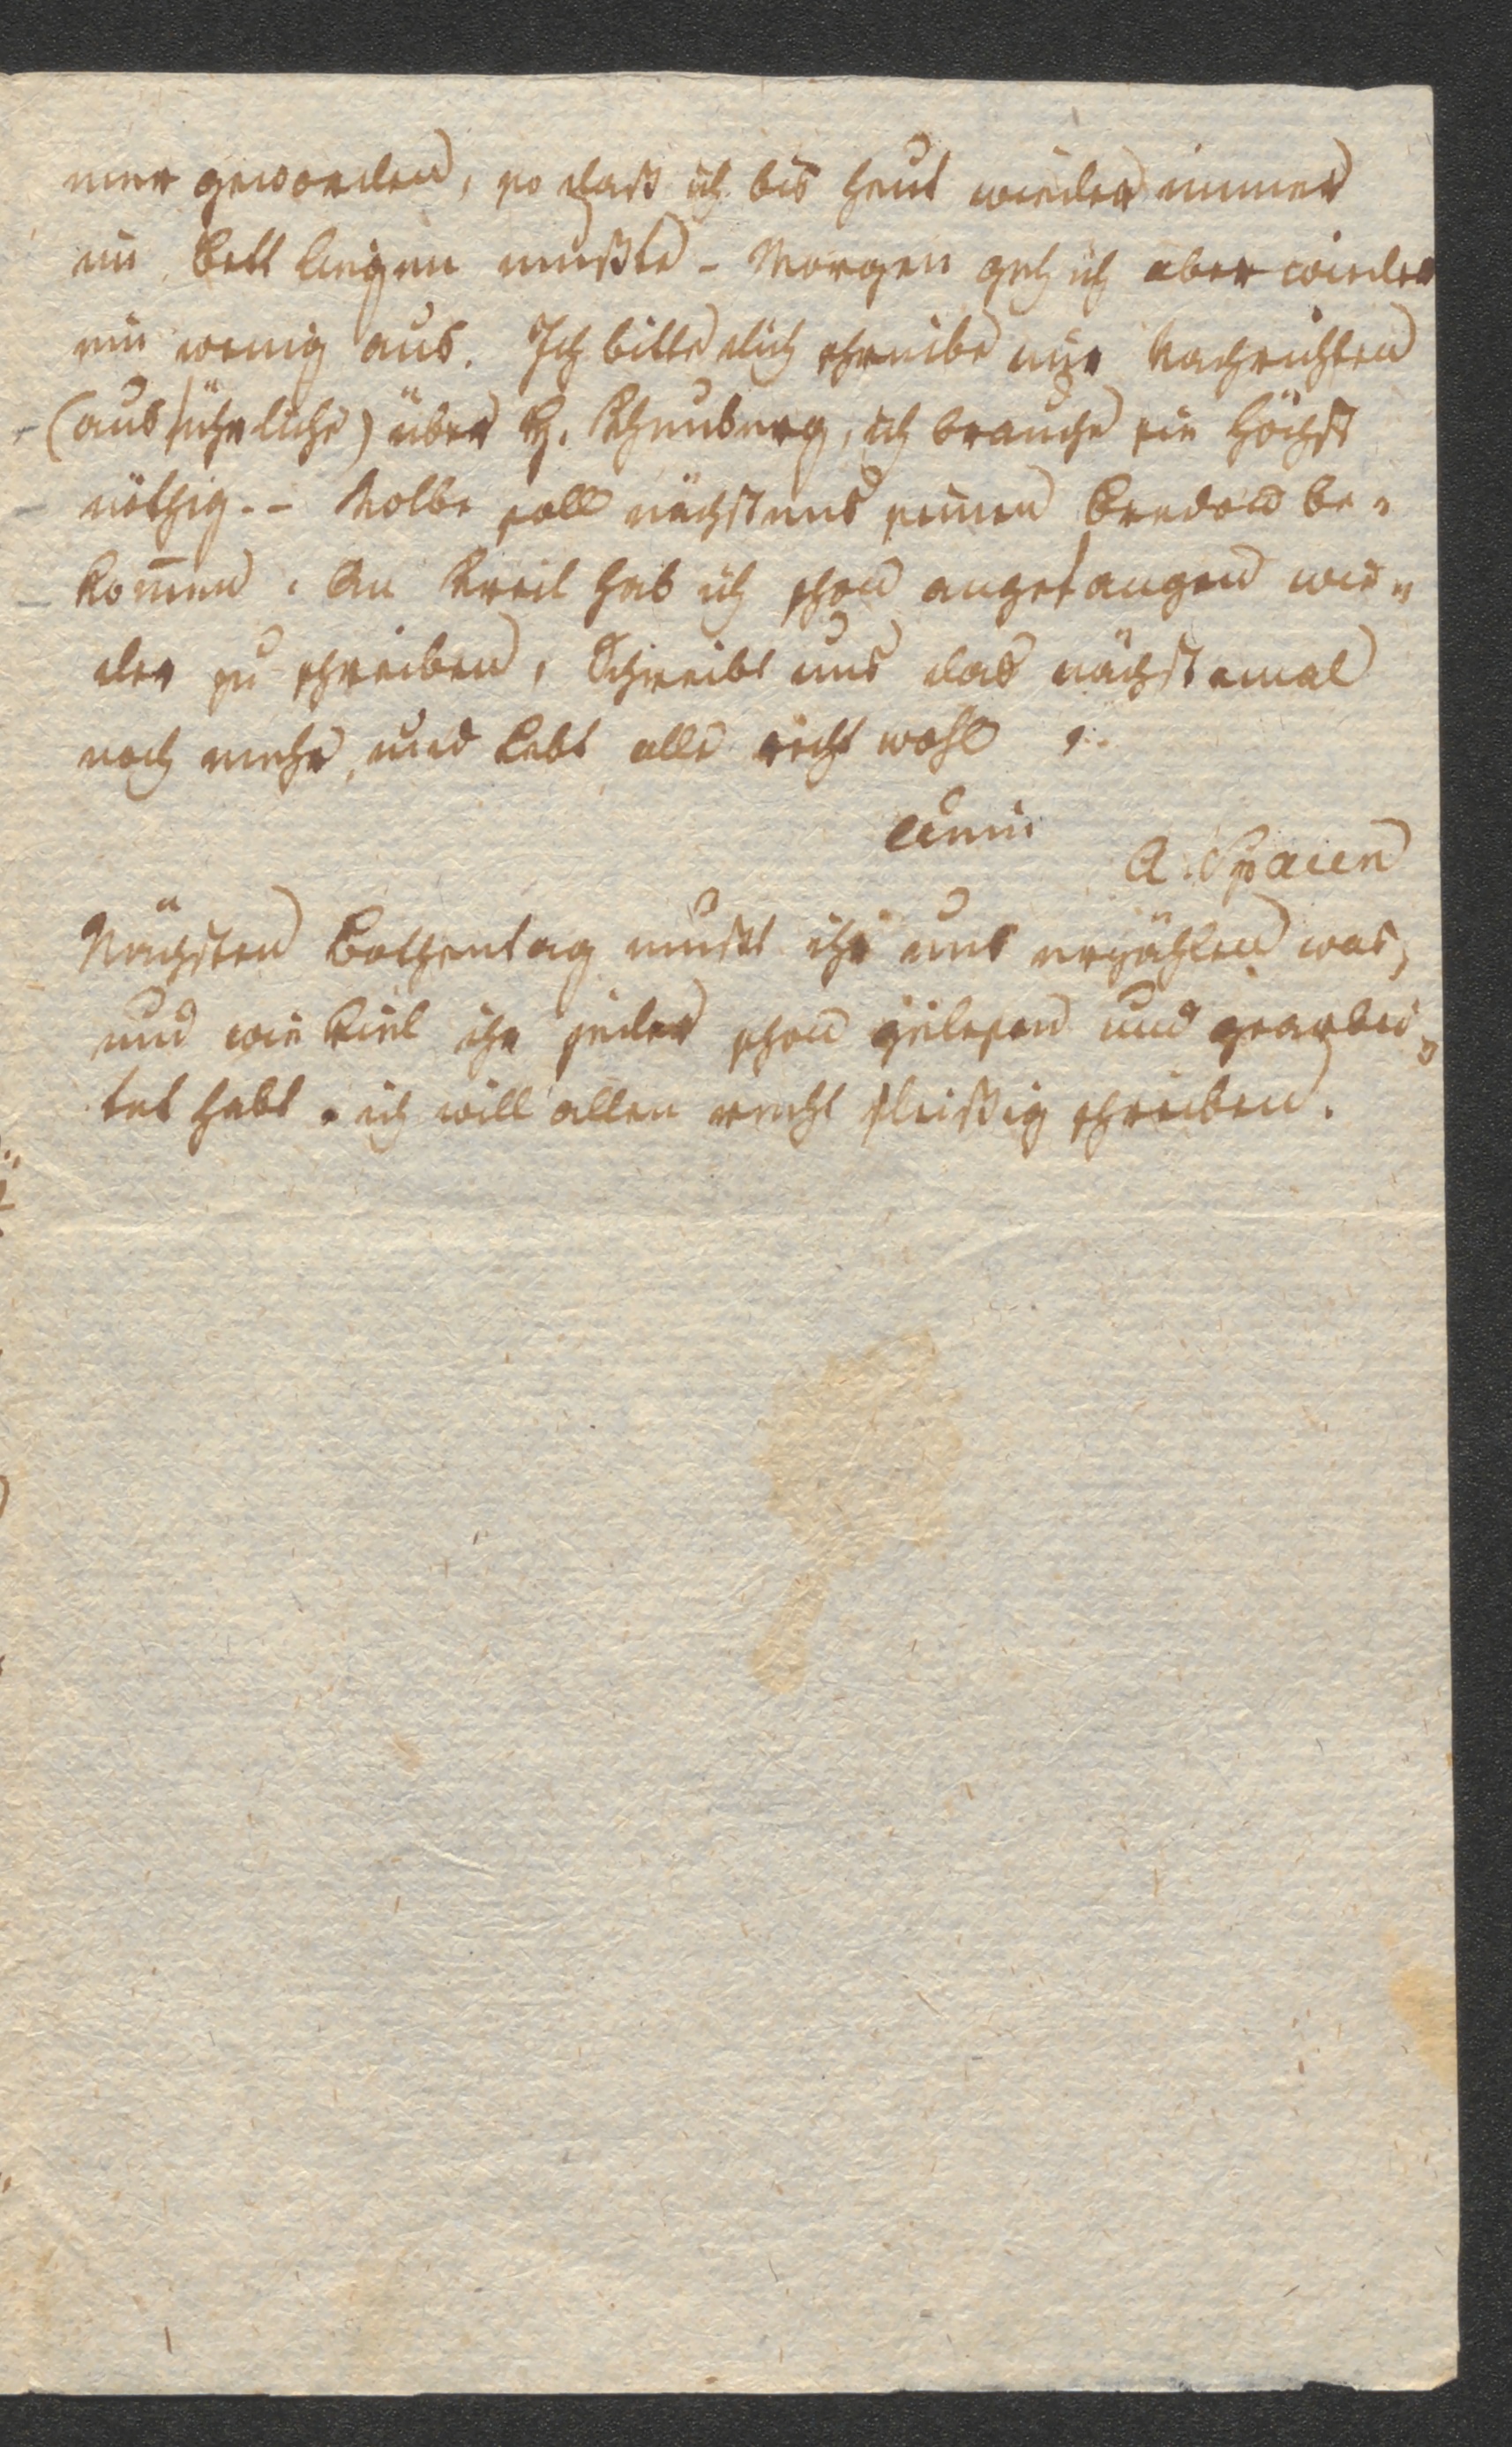 mer geworden, so daß ich bis heut wieder immer
im Bett liegen mußte - Morgen geh ich aber wieder
ein wenig aus. Ich bitte dich schreibe mir Nachrichten
(ausführliche) über H. Rheuberg, ich brauche sie höchst
nöthig. - Nolte soll nächstens seinen Bredow be-
kom̄en. An Kreil hab ich schon angefangen wie-
der zu schreiben, Schreibt uns das nächstemal
noch mehr, und lebt alle recht wohl.
Euer
A. Spaien
Nächsten Bothentag müßt ihr uns erzählen was,
und wie viel ihr jeder schon gelesen und gearbei-
tet habt. ich will allen recht fleißig schreiben.